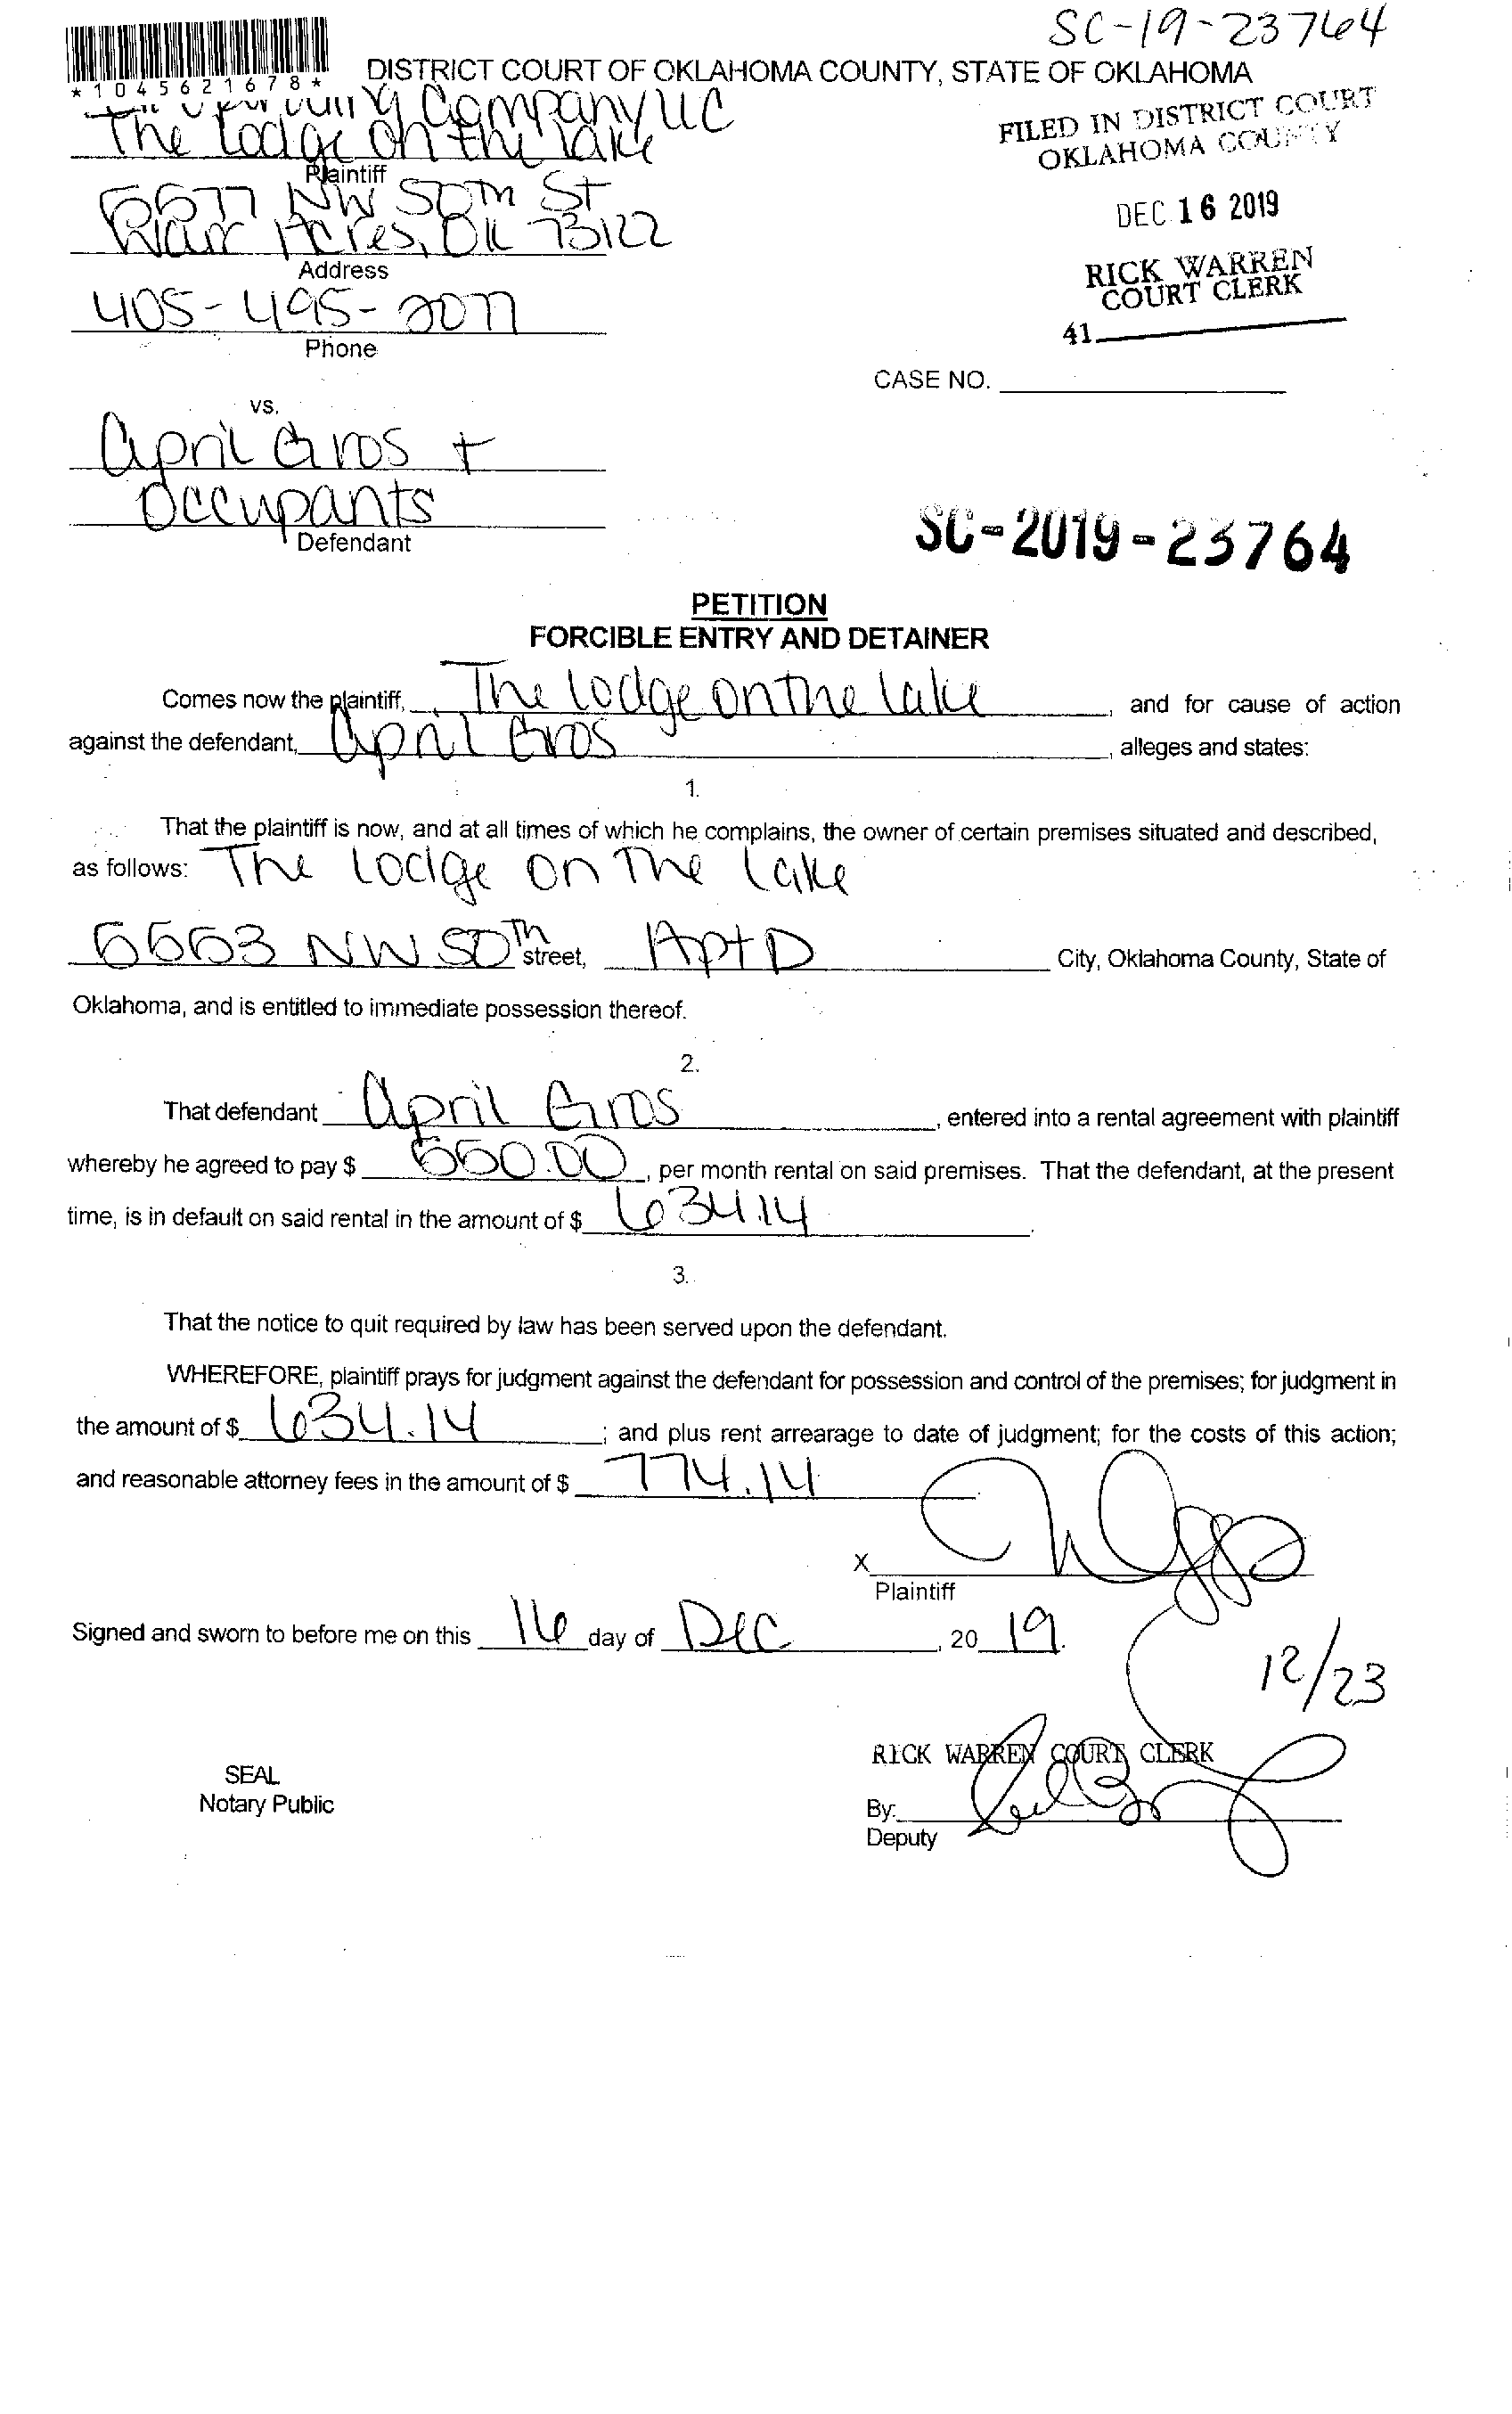 SC-19-23764
*1045621678*
DISTRICT COURT OF OKLAHOMA COUNTY, STATE OF OKLAHOMA
Company LLC
The Lodge on the lake
FILED IN DISTRICT COURT
OKLAHOMA COUNTY
Plaintiff
NW 50th St
DEC 16 2019
Acres, OK 73122
Address
RICK WARREN
COURT CLERK
405-495-2077
41
Phone
CASE NO.
vs.
April Gros +
Occupants
Defendant
SC-2019-23764
PETITION
FORCIBLE ENTRY AND DETAINER
Comes now the plaintiff, The Lodge on the lake, and for cause of action
against the defendant, April Gros, alleges and states:
1.
That the plaintiff is now, and at all times of which he complains, the owner of certain premises situated and described,
as follows: The Lodge on The Lake
NW 50th street, Apt D City, Oklahoma County, State of
Oklahoma, and is entitled to immediate possession thereof.
2.
That defendant April Gros, entered into a rental agreement with plaintiff
whereby he agreed to pay $ , per month rental on said premises. That the defendant, at the present
time, is in default on said rental in the amount of $ 634.14.
3.
That the notice to quit required by law has been served upon the defendant.
WHEREFORE, plaintiff prays for judgment against the defendant for possession and control of the premises; for judgment in
the amount of $ 634.14; and plus rent arrearage to date of judgment; for the costs of this action;
and reasonable attorney fees in the amount of $ 774.14
X
Plaintiff
Signed and sworn to before me on this 16 day of Dec, 20 19.
12/23
RICK WARREN COURT CLERK
SEAL
Notary Public
By:
Deputy